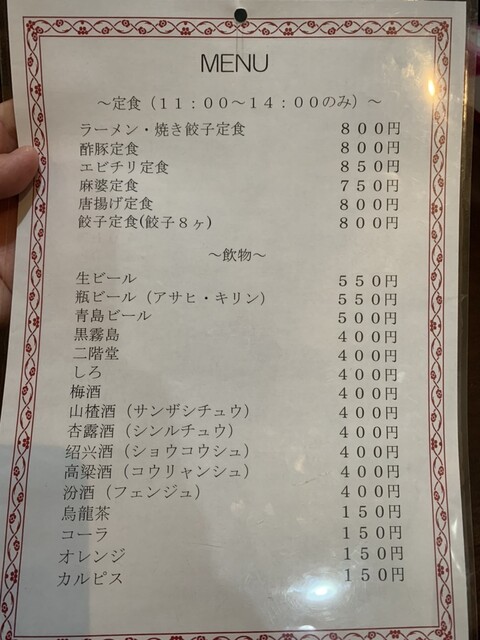 MENU
～定食（１１：００～１４：００のみ）～
ラーメン・焼き餃子定食 ８００円
酢豚定食 ８００円
エビチリ定食 ８５０円
麻婆定食 ７５０円
唐揚げ定食 ８００円
餃子定食(餃子８ヶ) ８００円
～飲物～
生ビール ５５０円
瓶ビール（アサヒ・キリン） ５５０円
青島ビール ５００円
黒霧島 ４００円
二階堂 ４００円
しろ ４００円
梅酒 ４００円
山楂酒（サンザシチュウ） ４００円
杏露酒（シンルチュウ） ４００円
绍兴酒（ショウコウシュ） ４００円
高粱酒（コウリャンシュ） ４００円
汾酒（フェンジュ） ４００円
烏龍茶 １５０円
コーラ １５０円
オレンジ １５０円
カルピス １５０円